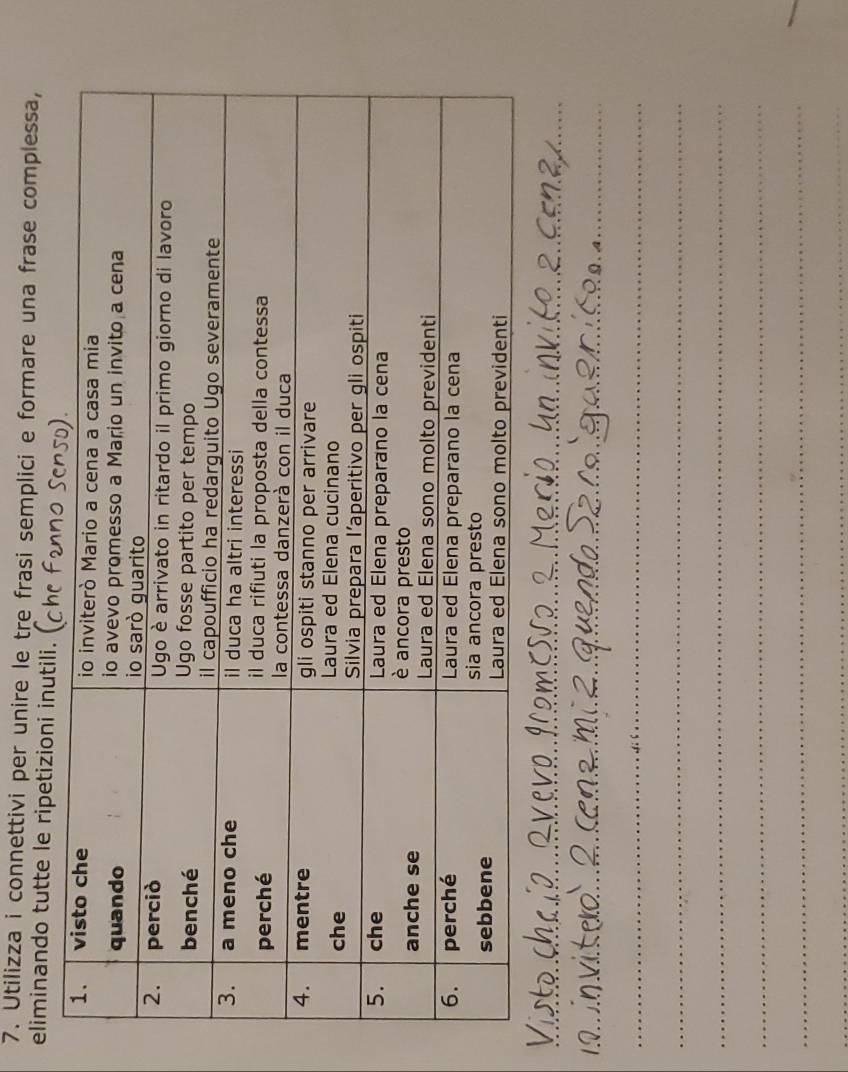 7. Utilizza i connettivi per unire le tre frasi semplici e formare una frase complessa,
eliminando tutte le ripetizioni inutili. (che fanno senso).
1. visto che io inviterò Mario a cena a casa mia
quando io avevo promesso a Mario un invito a cena
io sarò guarito
2. perciò Ugo è arrivato in ritardo il primo giorno di lavoro
benché Ugo fosse partito per tempo
il capoufficio ha redarguito Ugo severamente
3. a meno che il duca ha altri interessi
perché il duca rifiuti la proposta della contessa
la contessa danzerà con il duca
4. mentre gli ospiti stanno per arrivare
che Laura ed Elena cucinano
Silvia prepara l'aperitivo per gli ospiti
5. che Laura ed Elena preparano la cena
anche se è ancora presto
Laura ed Elena sono molto previdenti
6. perché Laura ed Elena preparano la cena
sebbene sia ancora presto
Laura ed Elena sono molto previdenti
Visto che io avevo promesso a Mario un invito a cena,
io inviterò a cena mia quando sarò guarito